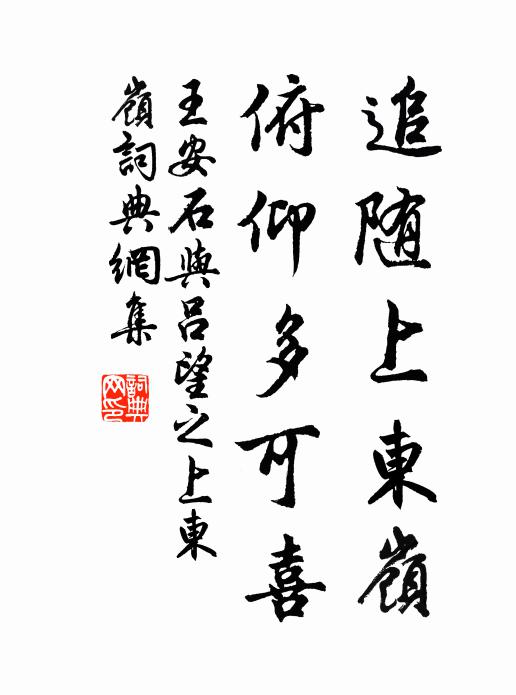 追随上東嶺
俯仰多可喜
王安石與吕望之上東
嶺詞典網集
詞典
网印